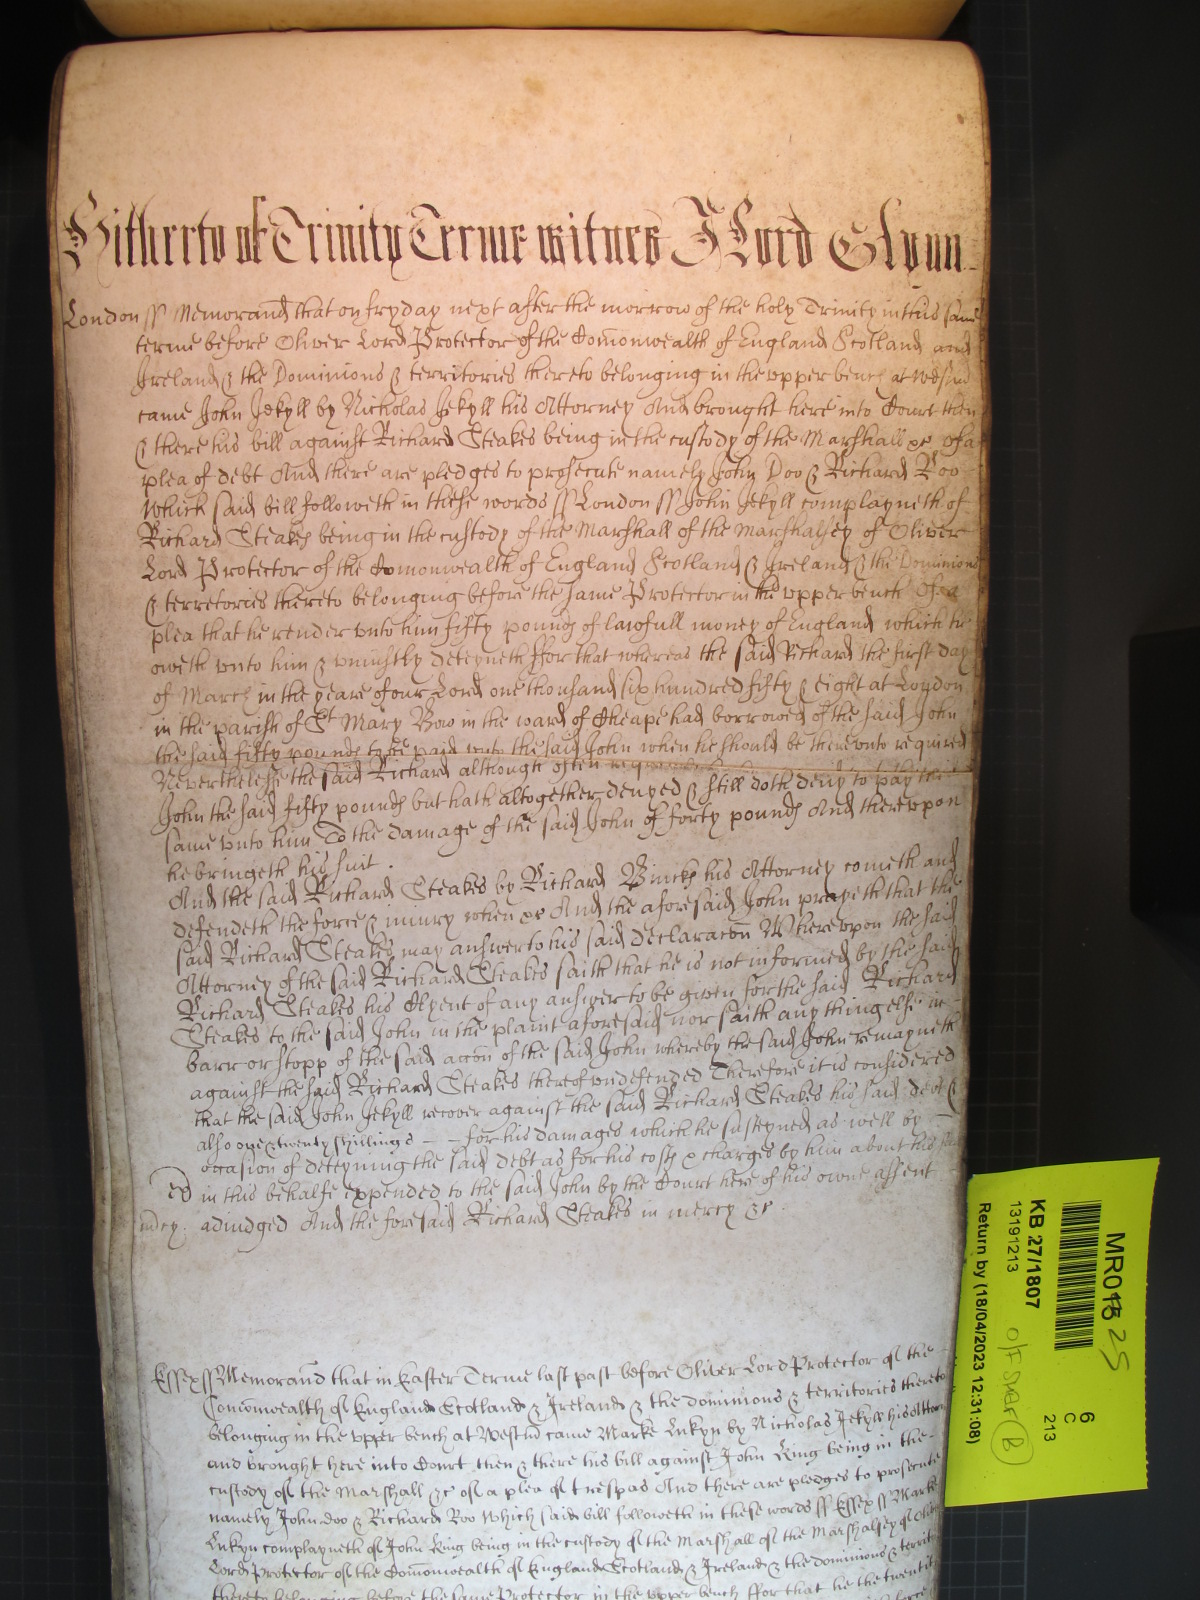 Hitherto of Trinity Terme witnes J Lord Glynn
London ss Memorand that on fryday next after the morrow of the holy Trinity in this same
terme before Oliver Lord Protector of the Comonwealth of England Scotland and
Ireland & the Dominions & territories thereto belonging in the upper bench at
came John Jekyll by Nicholas Jekyll his Attorney And brought here into Court then
& there his bill against Richard Steakes being in the custody of the Marshall &c of a
plea of debt And there are pledges to prosecute namely John Doo & Richard Roo
Which said bill followeth in these words ss London ss John Jekyll complayneth of
Richard Steakes being in the custody of the Marshall of the Marshalsey of Oliver
Lord Protector of the Comonwealth of England Scotland & Ireland & the Dominions
& terretories thereto belonging before the same Protector in the upper bench Of a
plea that he render unto him fifty pounds of lawfull money of England which he
oweth unto him & uniustly deteyneth ffor that whereas the said Richard the first day
of March in the yeare of our Lord one thousand six hundred fifty & eight at London
in the parish of St Mary Bow in the ward of Cheape had borrowed of the said John
the said fifty pounds to be paid unto the said John when he should be thereunto required
Neverthelesse the said Richard although often
John the said fifty pounds but hath altogether denyed & still doth deny to pay the
same unto him To the damage of the said John of forty pounds And thereupon
he bringeth his suit .
And the said Richard Steakes by Richard Bincks his Attorney cometh and
defendeth the force & iniury when &c And the aforesaid John prayeth that the
said Richard Steakes may answer to his said declaracon Whereupon the said
Attorney of the said Richard Steakes saith that he is not informed by the said
Richard Steakes his Clyent of any answer to be given for the said Richard
Steakes to the said John in the plaint aforesaid nor saith any thing else in
barr or stopp of the said accon of the said John whereby the said John remayneth
against the said Richard Steakes thereof undefended Therefore it is considered
that the said John Jekyll recover against the said Richard Steakes his said debt &
also one & twenty shillings - - for his damages which he susteyned as well by
occasion of deteyning the said debt as for his costs & charges by him about his suit
in this behalfe expended to the said John by the Court here of his owne assent
mercy. adiudged And the foresaid Richard Steakes in mercy &c.
Essex ss Memorand that in Easter Terme last past before Oliver Lord Protector of the
Comonwealth of England Scotland & Ireland & the dominions & territories thereto
belonging in the upper bench at Westm came Marke Lukyn by Nicholas Jekyll his Attorn
and brought here into Court then & there his bill against John King being in the
custody of the Marshall &c of a plea of trespas And there are pledges to prosecute
namely John doo & Richard Roo Which said bill followeth in these words ss Essex ss Marke
Lukyn complayneth of John King being in the custody of the Marshall of the Marshalsey of Oliver
Lord Protector of the Comonwealth of England Scotland & Ireland & the dominions & territ
thereto belonging before the same Protector in the upper bench ffor that he the twentie
MR018 25
6
C
213
KB 27/1807
13191213
O/F Shelf (B)
Return by (18/04/2023 12:31:08)